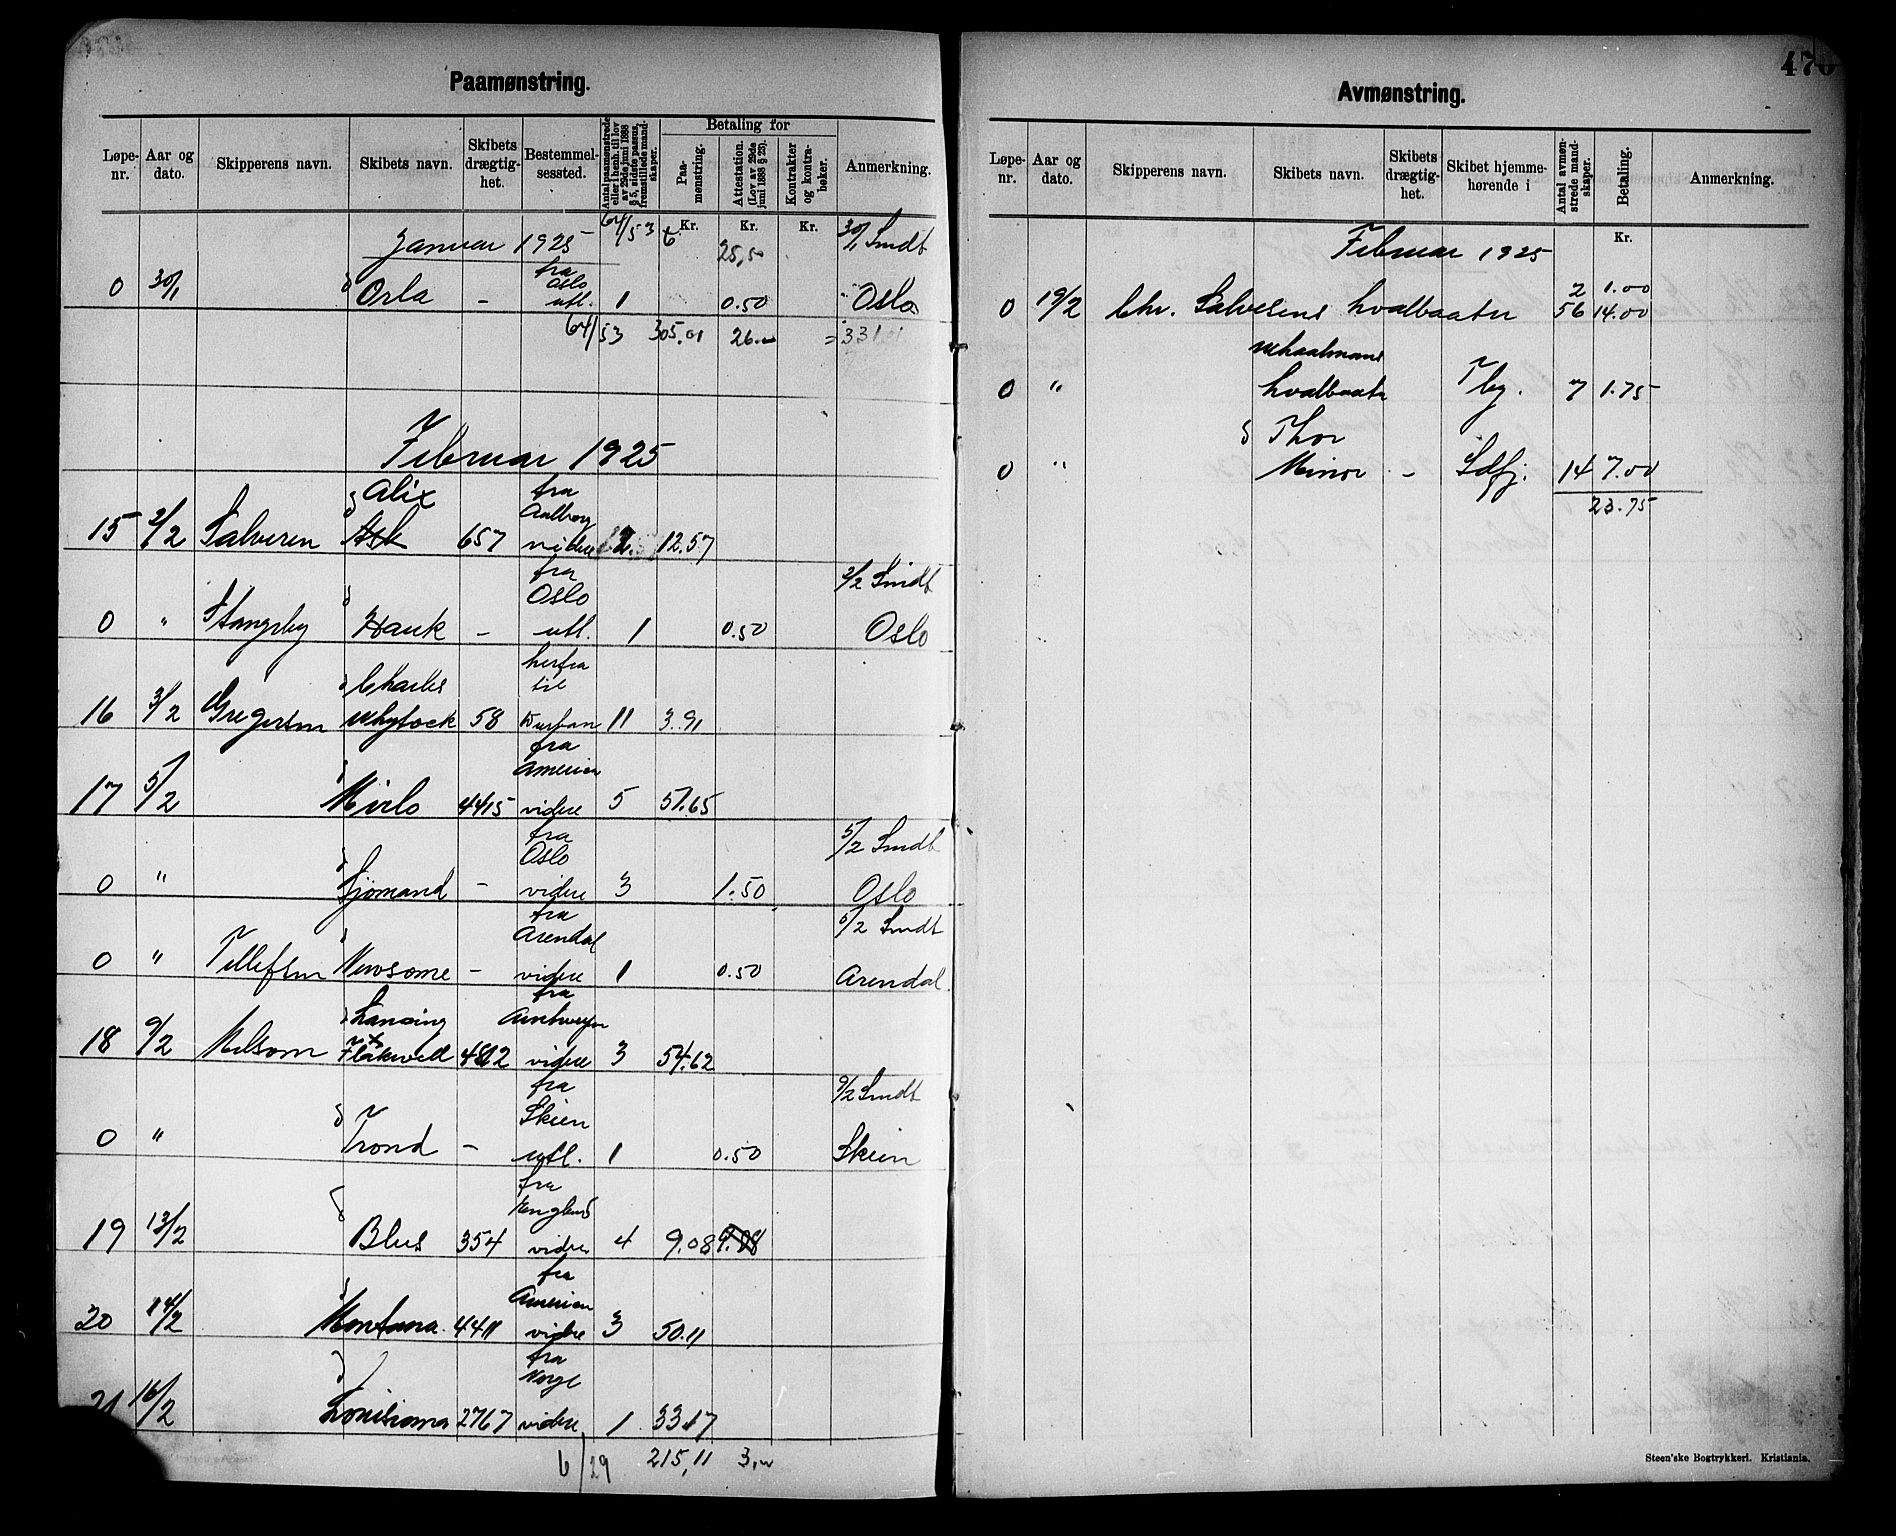 Paamønstring.
Løpe-nr. | Aar og dato. | Skipperens navn. | Skibets navn. | Skibets drægtig-het. | Bestemmel-sessted. | Antal paamønstrede eller i henh. til lov av 29de juni 1888 § 5, sidste passus, fremstillede mand-skaper. | Betaling for | Paa-mønstring. | Attestation. (Lov av 29de juni 1888 § 23). | Kontrakter og kontra-bøker. | Anmerkning.
Kr. Kr. Kr.
Januar 1925 64/53 25,50 30/1 Smdt
fra
Oslo
0 30/1 Orla - utl. 1 0.50 Oslo
64/53 305.01 26.- = 331.01
Februar 1925
Alix fra
Aalborg
15 2/2 Salvesen Ask 657 videre 12 12.57
fra 2/2 Smdt
Oslo
0 " Stangeby Hauk - utl. 1 0.50 Oslo
herfra
Charles til
16 3/2 Gregersen Whytock 58 Durban 11 3.91
fra
America
17 5/2 Mirlo 4415 videre 5 51.65
fra 5/2 Smdt
Oslo
0 " Sjömand - videre 3 1.50 Oslo
fra 5/2 Smdt
Arendal
0 " Tellefsen Newsome - videre 1 0.50 Arendal
fra
Lancing Antwerpen
18 9/2 Melsom videre 3 54.62
fra 9/2 Smdt
Skien
0 " Trond - utl. 1 0.50 Skien
fra
England
19 13/2 Blus 354 videre 4 9.08 9.08
fra
America
20 14/2 Montana 4411 videre 3 50.11
fra
Norge
21 16/2 Louisiana 2767 videre 1 33.17
6/29 215,11 3,00
470
Avmønstring.
Løpe-nr. | Aar og dato. | Skipperens navn. | Skibets navn. | Skibets drægtig-het. | Skibet hjemme-hørende i | Antal avmøn-strede mand-skaper. | Betaling. | Anmerkning.
Kr.
Februar 1925
2 1.00
0 19/2 Chr. Salvesens hvalbaater 56 14.00
0 " hvalbaate Tbg. 7 1.75
Thor
0 " Minor - Sdfj. 14 7.00
23.75
Steen'ske Bogtrykkeri. Kristiania.